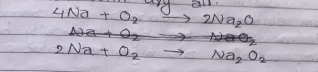 4Na + O₂ → 2Na₂O
Na + O₂ → NaO₂
2Na + O₂ → Na₂O₂